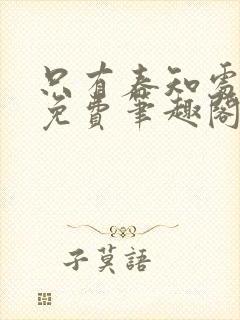 只有春知處
免費筆趣閣
子莫語